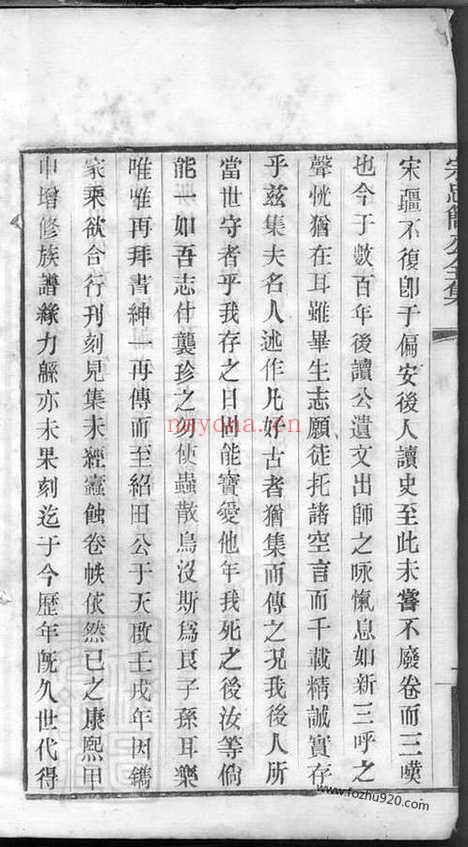 宋忠簡公全集
宋疆不復卽于偏安後人讀史至此未嘗不廢卷而三嘆
也今于數百年後讀公遺文出師之咏愾息如新三呼之
聲恍猶在耳雖畢生志願徒托諸空言而千載精誠實存
乎茲集夫名人述作凡好古者猶集而傳之况我後人所
當世守者乎我存之日固能寶愛他年我死之後汝等倘
能一如吾志什襲珍之勿使蟲散鳥沒斯爲良子孫耳樂
唯唯再拜書紳一再傳而至紹田公于天啟壬戌年因鐫
家乘欲合行刊刻見集未經蠹蝕卷帙依然已之康熙甲
申增修族譜緣力緜亦未果刻迄于今歷年旣久世代得
nayona.cn
www.fozhu920.com